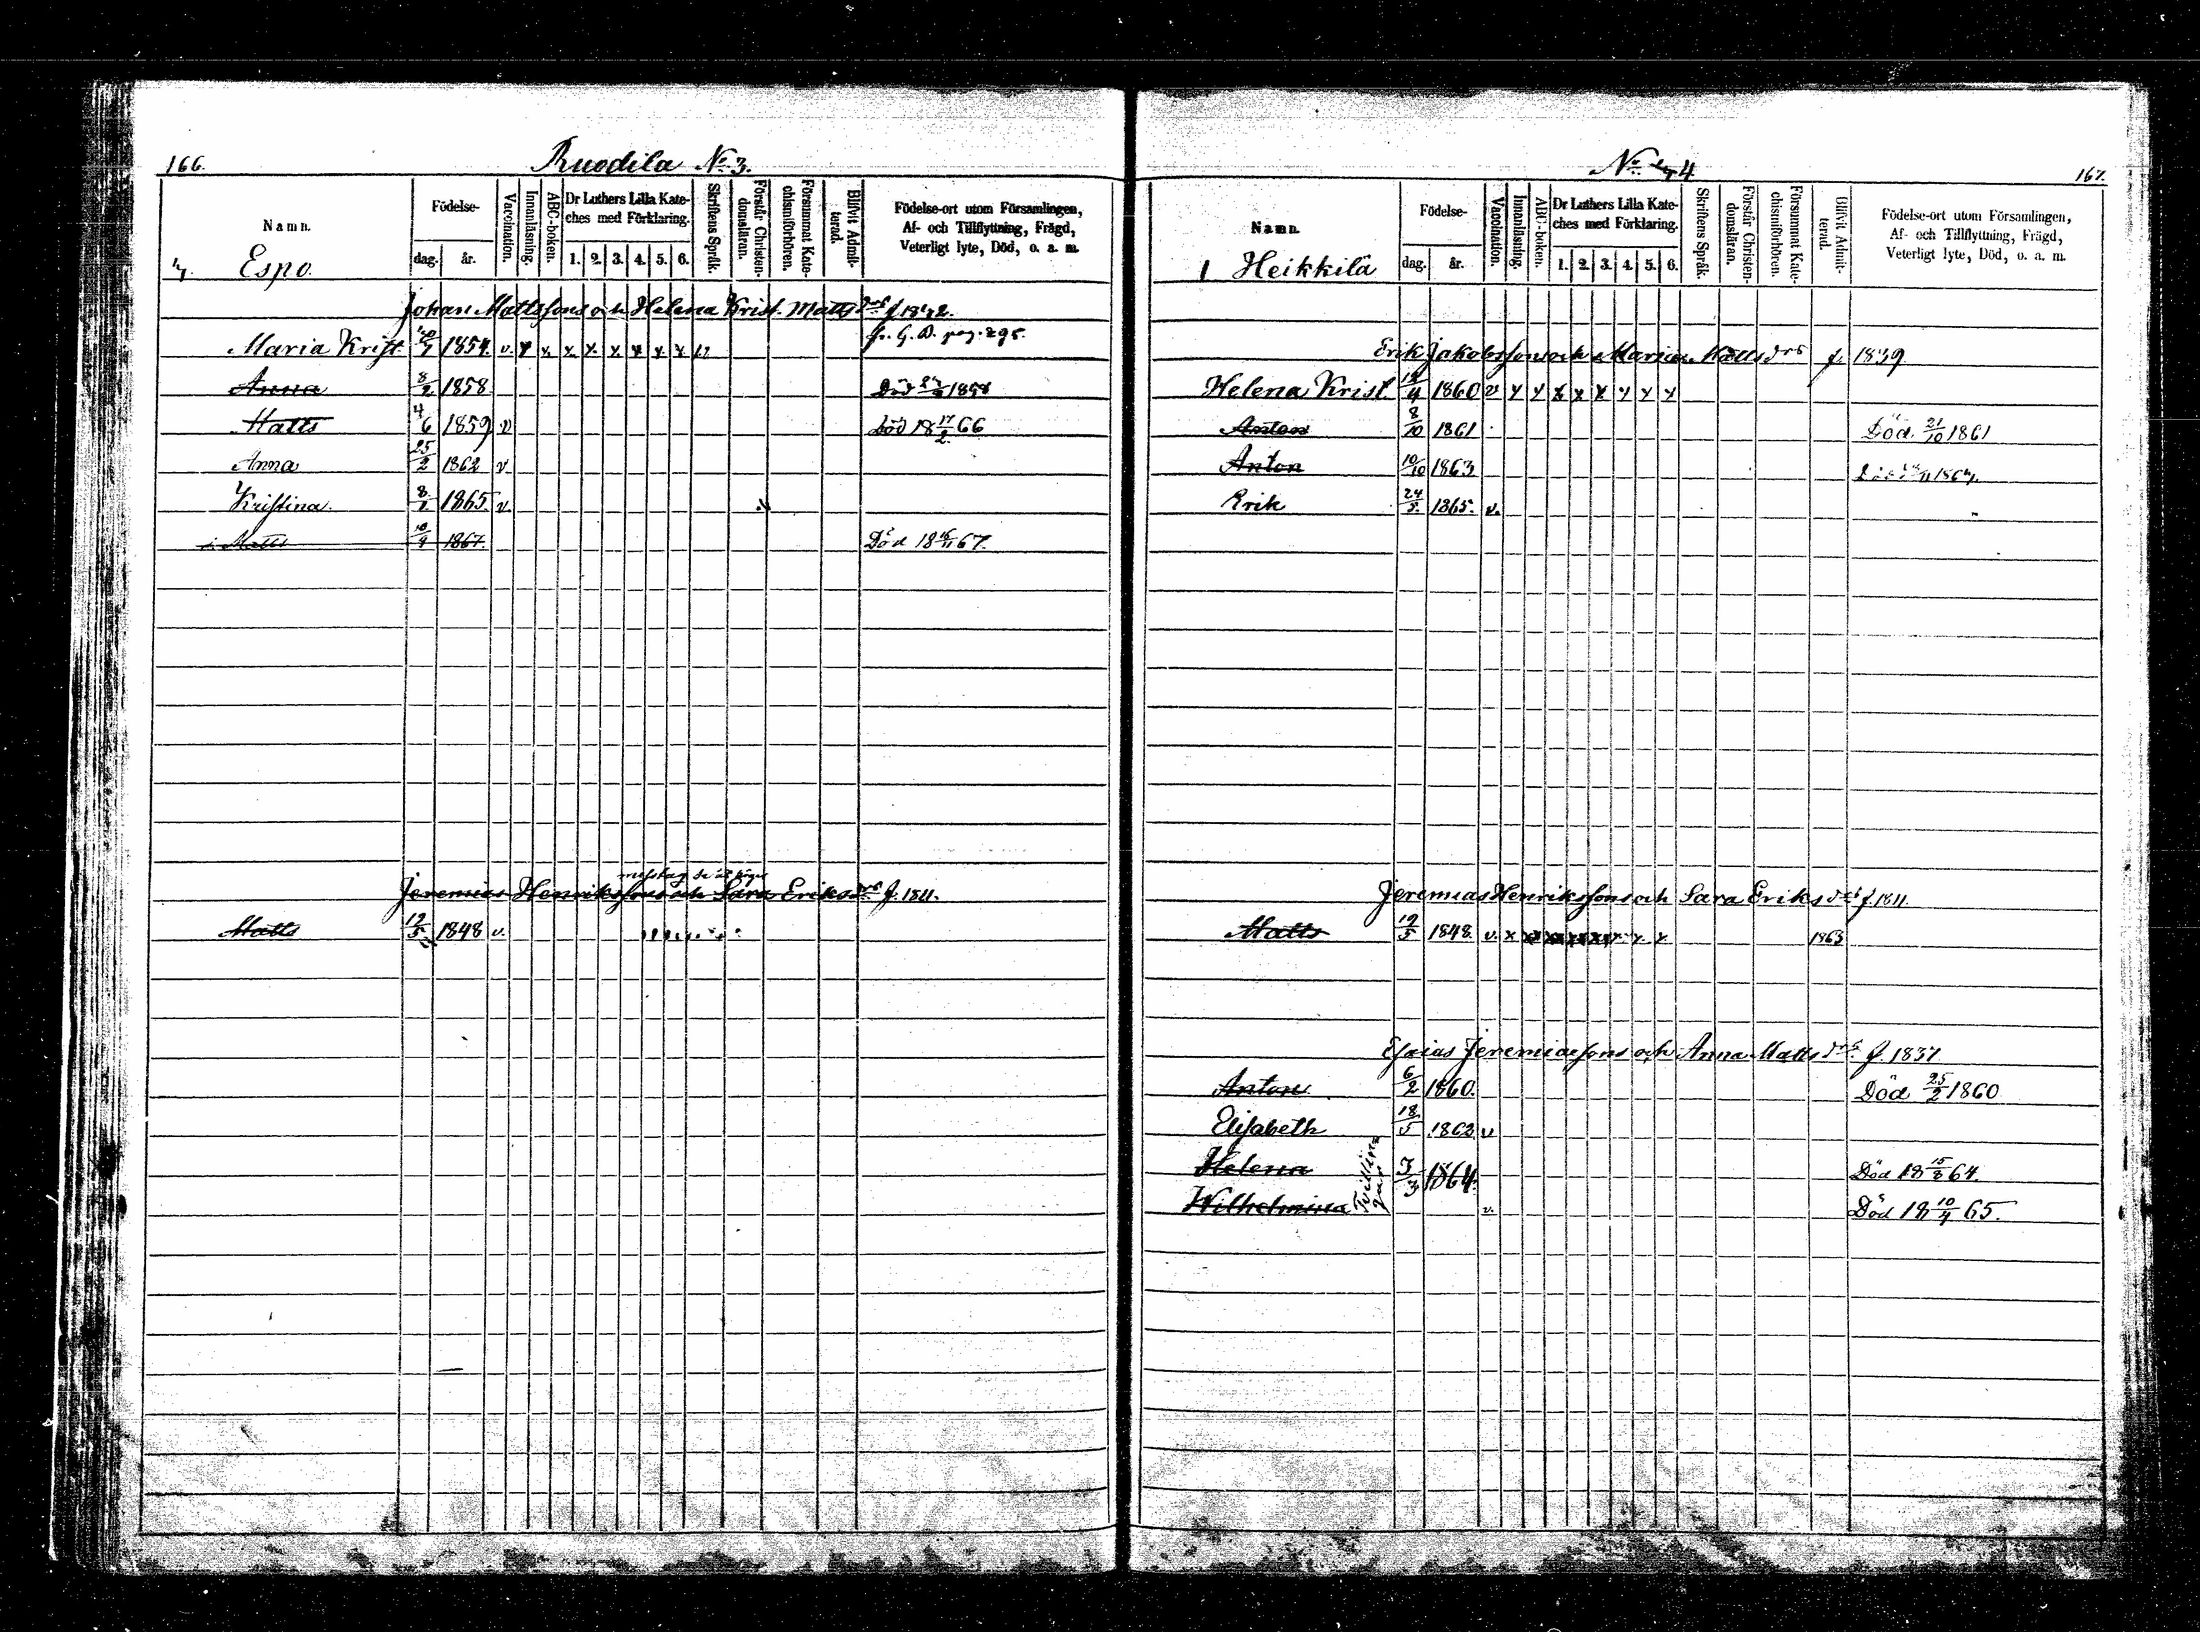 166.
Ruodila No 3.
Namn.
Födelse-
dag.
år.
Vaccination.
Innanläsning.
ABC-boken.
Dr Luthers Lilla Kate-
ches med Förklaring.
1. 2. 3. 4. 5. 6.
Skriftens Språk.
Förstår Christen-
domsläran.
Försummat Kate-
chismiförhören.
Blifvit Admit-
terad.
Födelse-ort utom Församlingen,
Af- och Tillflyttning, Frägd,
Veterligt lyte, Död, o. a. m.
Espo.
Johan Mattssons och Helena Krist. Matts drs f 1832.
Maria Krist. 1854. v. x x x x x x x x
pag. 295.
Anna 8/2 1858 Död 1858
Matts 4/6 1859 v Död 18 17/2 66
Anna 25/2 1862 v
Kristina. 8/1 1865. v
Matts 10/9 1867. Död 18 16/11 67.
Jeremias Henrikssons och Sara Eriks drs f. 1811.
Matts 12/5 1848 v.
No 4
167.
Namn.
Födelse-
dag.
år.
Vaccination.
Innanläsning.
ABC-boken.
Dr Luthers Lilla Kate-
ches med Förklaring.
1. 2. 3. 4. 5. 6.
Skriftens Språk.
Förstår Christen-
domsläran.
Försummat Kate-
chismiförhören.
Blifvit Admit-
terad.
Födelse-ort utom Församlingen,
Af- och Tillflyttning, Frägd,
Veterligt lyte, Död, o. a. m.
1 Heikkilä
Erik Jakobssons och Maria Matts drs f. 1839
Helena Krist. 12/4 1860 v x x x x x x x x
Anton 8/10 1861 Död 21/10 1861
Anton 10/10 1863
Erik 24/5 1865. v.
Jeremias Henrikssons och Sara Eriks drs f. 1811.
Matts 12/5 1848. v. x x x x x x x x 1863
Esaias Jeremiassons och Anna Matts drs f. 1837
Anton 6/2 1860. Död 25/2 1860
Elisabeth 18/5 1862 v
Helena Tvillin-
gar 3/3 1864. Död 18 15/8 64.
Wilhelmina v. Död 18 10/4 65.